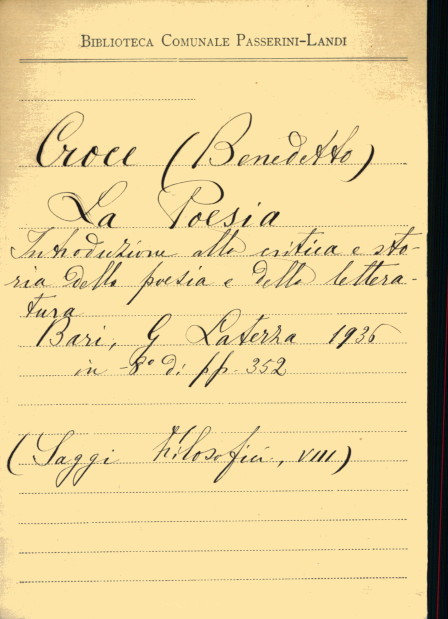 BIBLIOTECA COMUNALE PASSERINI-LANDI
Croce (Benedetto)
La Poesia
Introduzione alla critica e sto-
ria della poesia e della lettera-
tura
Bari, G Laterza 1936
in -8° di pp. 352
(Saggi filosofici, VIII)